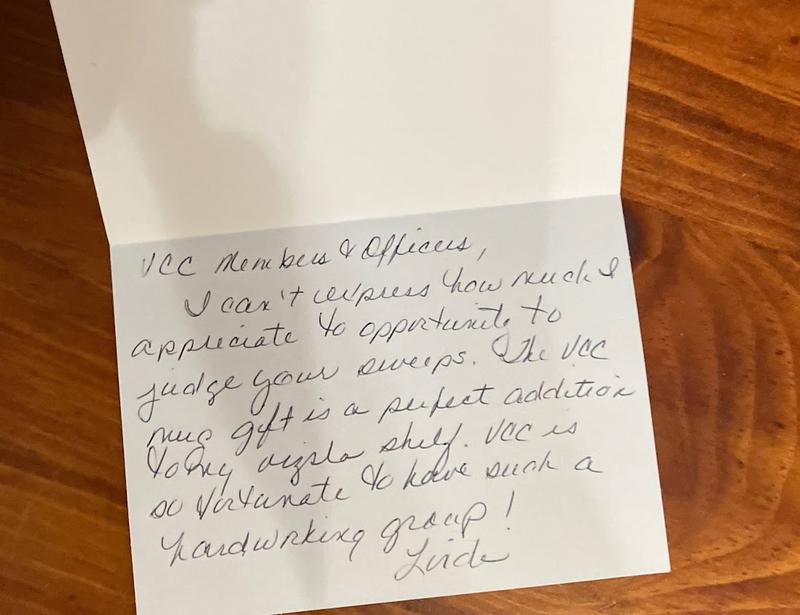 VCC Members & Officers,
I can't express how much I
appreciate to opportunity to
judge your sweeps. The VCC
mug gift is a perfect addition
to my vizsla shelf. VCC is
so fortunate to have such a
hardworking group!
Linda